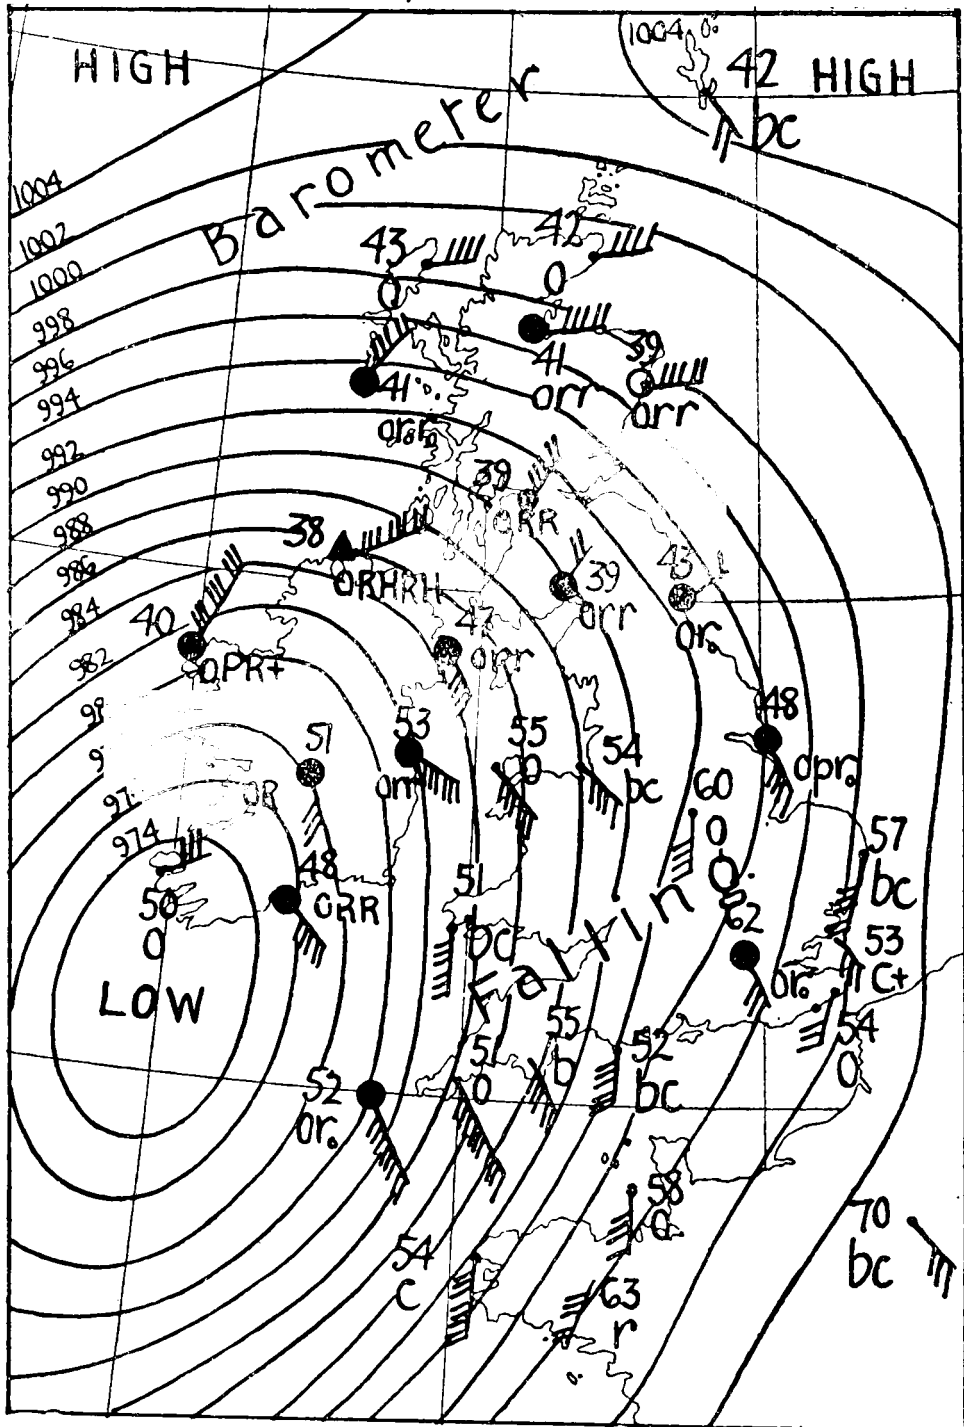 HIGH
1004
42
HIGH
bc
Barometer
1004
1002
1000
998
996
994
992
990
988
986
984
982
974
43
O
42
O
41
orr
39
orr
41
orr
39
ORR
38
ORHRH
39
orr
43
or.
40
OPR+
orr
48
opr.
51
OR
53
orr
55
O
54
bc
60
O
57
bc
50
O
48
ORR
51
bc
Falling
62
or.
53
C+
54
O
LOW
52
or.
51
O
55
b
52
bc
58
70
bc
54
c
63
r